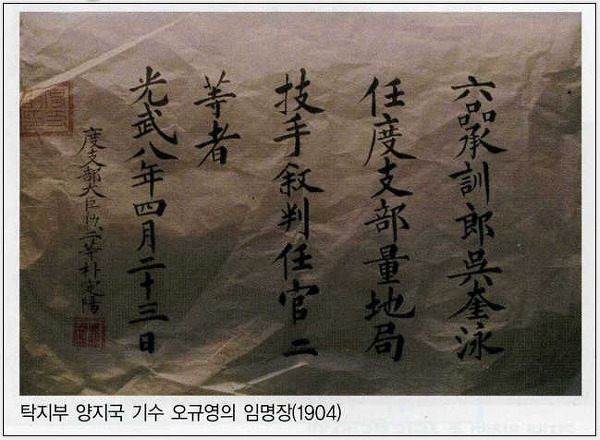 六品承訓郎吳奎泳
任度支部量地局
技手敘判任官二
等者
光武八年四月二十三日
度支部大臣勲二等朴定陽
탁지부 양지국 기수 오규영의 임명장(1904)